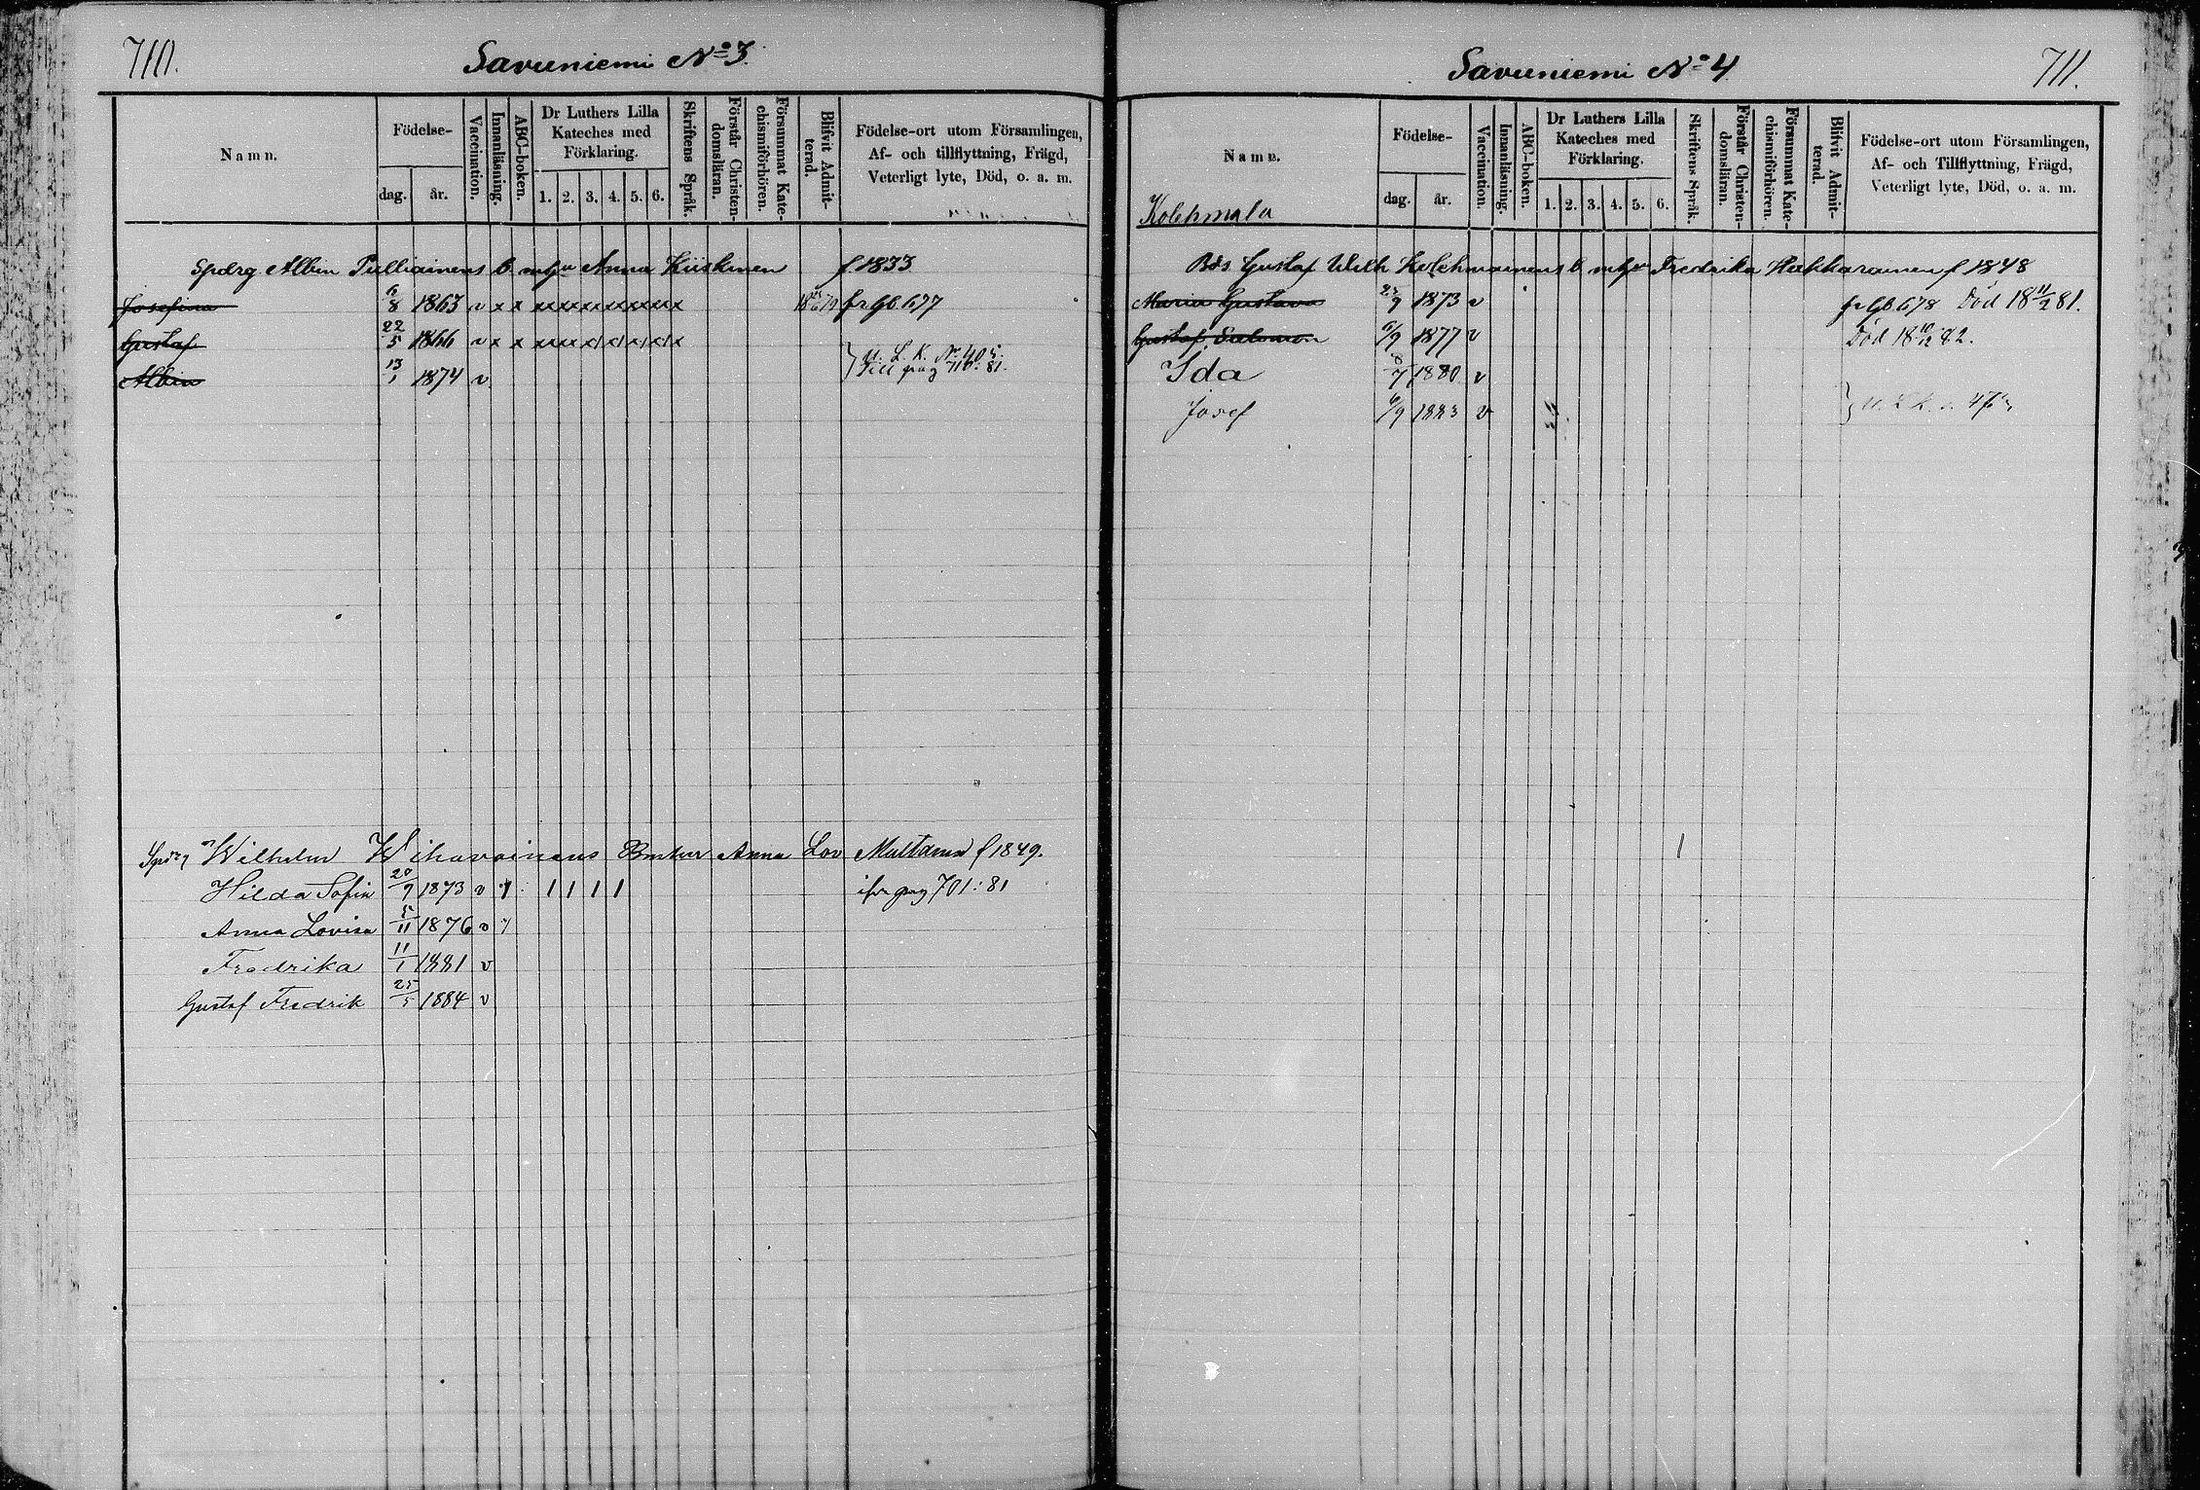 710.
Savuniemi No 3.
Namn.
Födelse-
dag.
år.
Vaccination.
Innanläsning.
ABC-boken.
Dr Luthers Lilla
Kateches med
Förklaring.
1. 2. 3. 4. 5. 6.
Skriftens Språk.
Förstår Christen-
domsläran.
Försummat Kate-
chismiförhören.
Blifvit Admit-
terad.
Födelse-ort utom Församlingen,
Af- och tillflyttning, Frägd,
Veterligt lyte, Död, o. a. m.
Albin Pulliainens b. Anna Kiiskinen f. 1833
Josefina 6/8 1863 v x x x x x x x x x x x x x fr gb 677
Gustaf 22/5 1866 v x x x x x x x x x x x x
Till pag 710: 81.
Albin 13/1 1874 v
Wilhelm Wihavainens Anna Lov Multanen f 1849.
Hilda Sofia 20/9 1873 v 1 1 1 1 ifr pag 701: 81
Anna Lovisa 11 1876 v
Fredrika 11/1 1881 v
Gustaf Fredrik 25/5 1884 v
711.
Savuniemi No 4
Namn.
Kolehmala
Födelse-
dag.
år.
Vaccination.
Innanläsning.
ABC-boken.
Dr Luthers Lilla
Kateches med
Förklaring.
1. 2. 3. 4. 5. 6.
Skriftens Språk.
Förstår Christen-
domsläran.
Försummat Kate-
chismiförhören.
Blifvit Admit-
terad.
Födelse-ort utom Församlingen,
Af- och Tillflyttning, Frägd,
Veterligt lyte, Död, o. a. m.
Gustaf Wilh Kolehmainens b. Fredrika Hakkarainen f 1848
Maria Gustava 9 1873 v fr gb 678 Död 18 11/2 81.
Gustaf Salomon 6/9 1877 v Död 18 10/12 82.
Ida 7 1880 v
Josef 6/9 1883 v